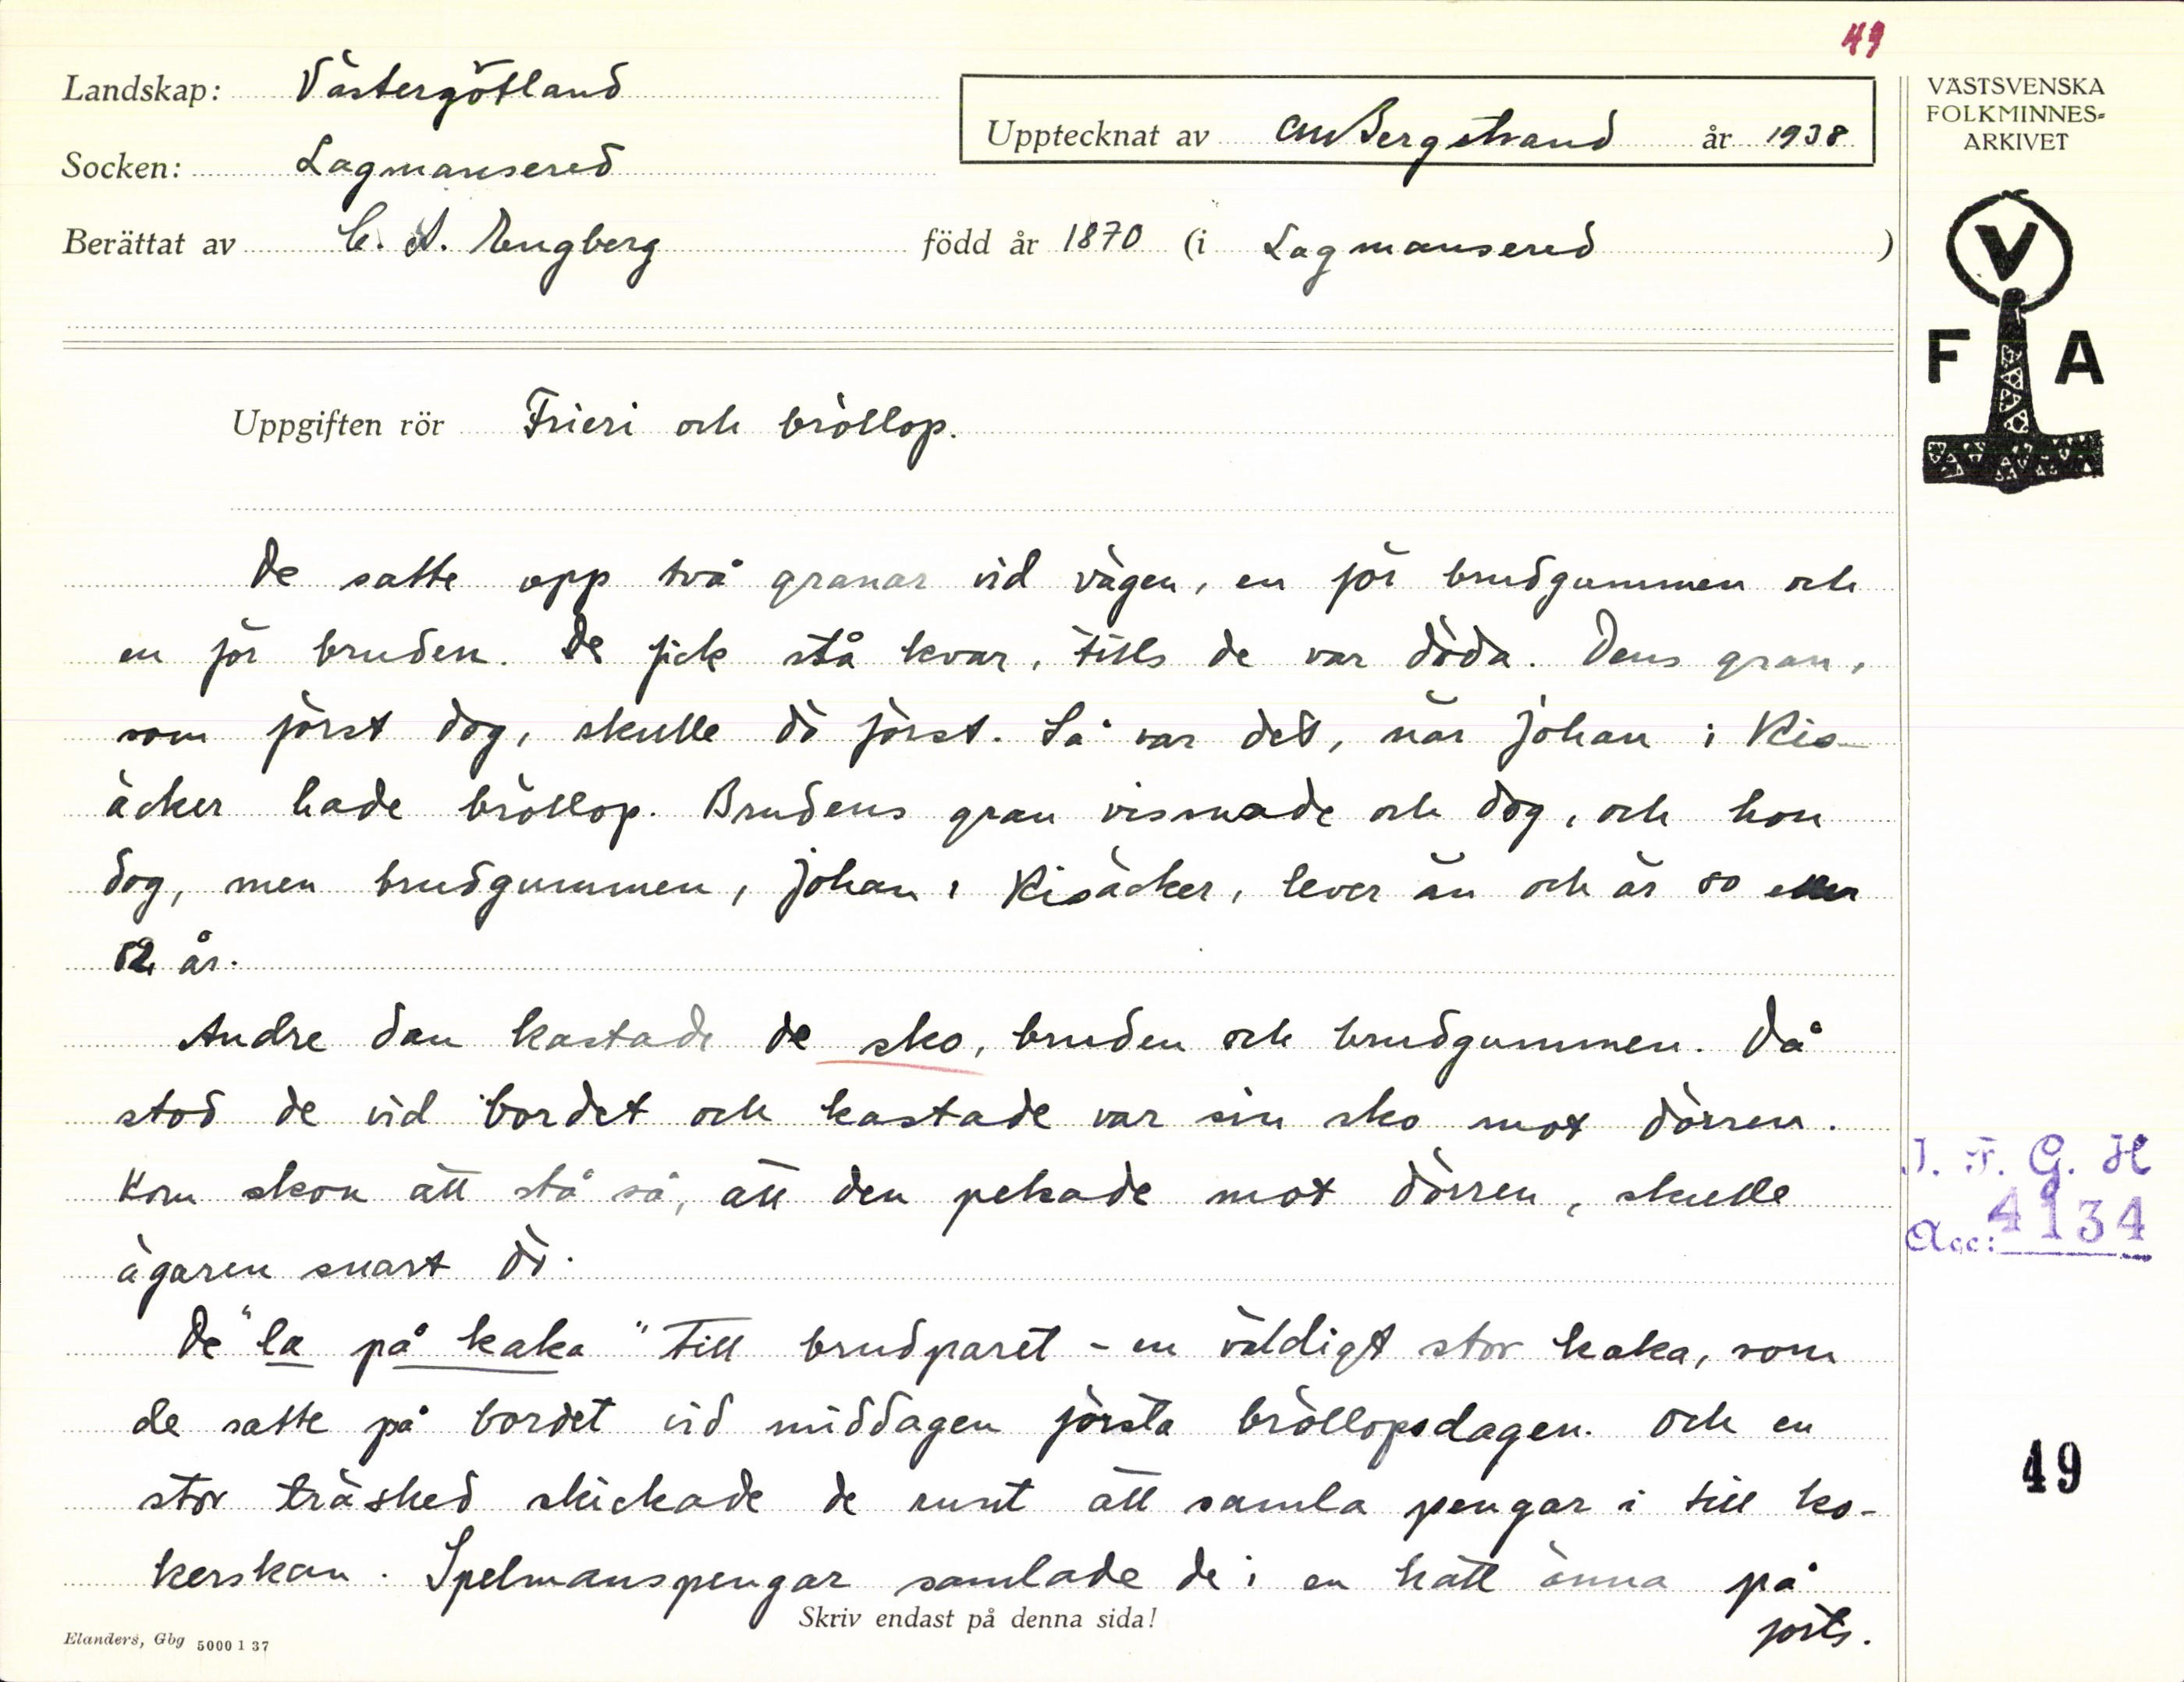 49
Landskap: Västergötland
Upptecknat av CM Bergstrand år 1938
Socken: Lagmansered
Berättat av C. A. Engberg född år 1870 (i Lagmansered )
Uppgiften rör Frieri och bröllop.
De satte opp två granar vid vägen, en för brudgummen och
en för bruden. De fick stå kvar, tills de var döda. Dens gran,
som först dog, skulle dö först. Så var det, när Johan i Kis-
äcker hade bröllop. Brudens gran vissnade och dog, och hon
dog, men brudgummen, Johan i Kisäcker, lever än och är 80 eller
82 år.
Andre dan kastade de sko, bruden och brudgummen. Då
stod de vid bordet och kastade var sin sko mot dörren.
Kom skon att stå så, att den pekade mot dörren, skulle
ägaren snart dö.
De "la på kaka" till brudparet - en väldigt stor kaka, som
de satte på bordet vid middagen första bröllopsdagen. Och en
stor träsked skickade de runt att samla pengar i till ko-
kerskan. Spelmanspengar samlade de i en hatt änna på
forts.
Skriv endast på denna sida!
Elanders, Gbg 5000 1 37
VÄSTSVENSKA
FOLKMINNES-
ARKIVET
V
F A
I. F. G. H
Acc: 4134
49